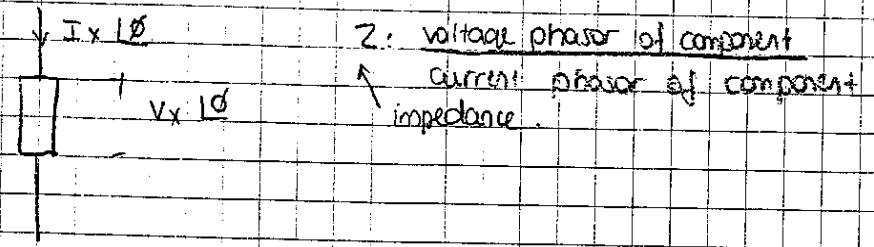 Ix ∠Ø
Z: voltage phasor of component
current phasor of component
Vx ∠Ø
impedance.